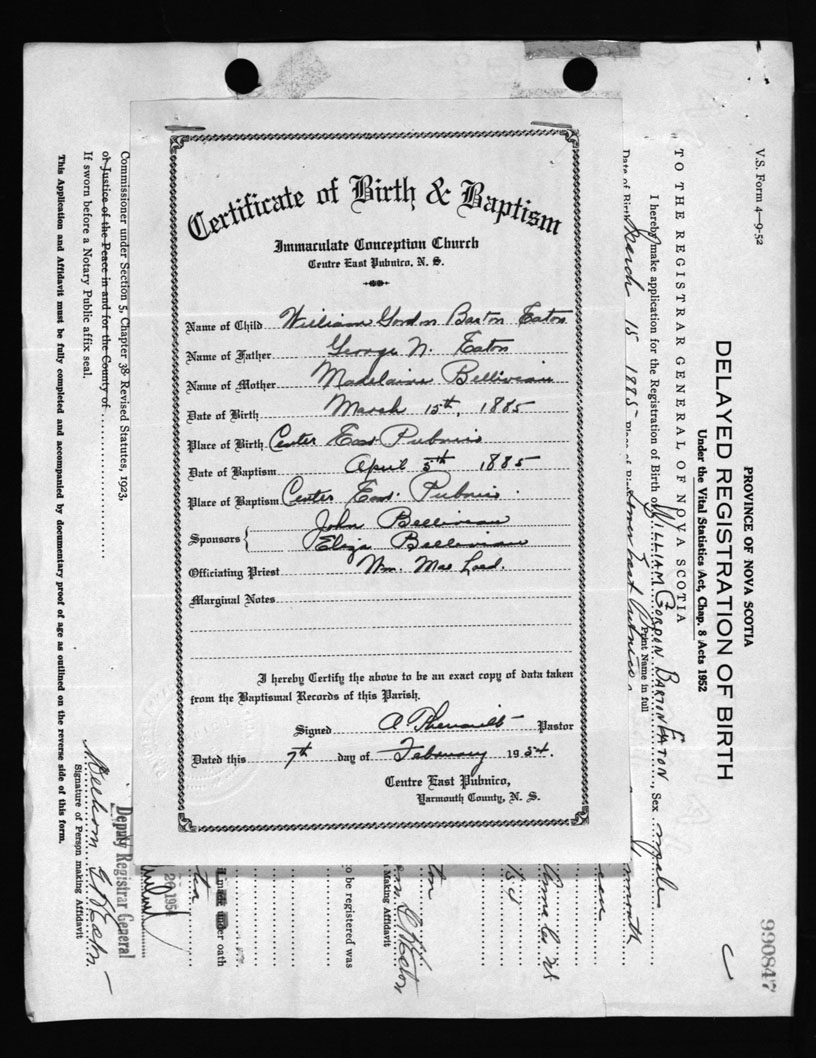 Certificate of Birth & Baptism
Immaculate Conception Church
Centre East Pubnico, N. S.
Name of Child William Gordon Barton Eaton
Name of Father George N. Eaton
Name of Mother Madelaine Bellivean
Date of Birth March 15th, 1885
Place of Birth Center East Pubnico
Date of Baptism April 5th 1885
Place of Baptism Center East Pubnico
Sponsors { John Bellivean
Eliza Bellivean
Officiating Priest Wm. Mac Leod.
Marginal Notes
I hereby Certify the above to be an exact copy of data taken
from the Baptismal Records of this Parish.
Signed A Pastor
Dated this 7th day of February 1954.
Centre East Pubnico,
Yarmouth County, N. S.
V.S. Form 4—9-52
990847
PROVINCE OF NOVA SCOTIA
DELAYED REGISTRATION OF BIRTH
Under the Vital Statistics Act, Chap. 8 Acts 1952
TO THE REGISTRAR GENERAL OF NOVA SCOTIA
I hereby make application for the Registration of Birth of WILLIAM GORDON BARTON EATON, Sex male
Print Name in full
Date of Birth March 15 1885
o be registered was
Making Affidavit
er oath
20 1954
Commissioner under Section 5, Chapter 38 Revised Statutes, 1923,
or Justice of the Peace in and for the County of
If sworn before a Notary Public affix seal.
Deputy Registrar General
Signature of Person making Affidavit
This Application and Affidavit must be fully completed and accompanied by documentary proof of age as outlined on the reverse side of this form.